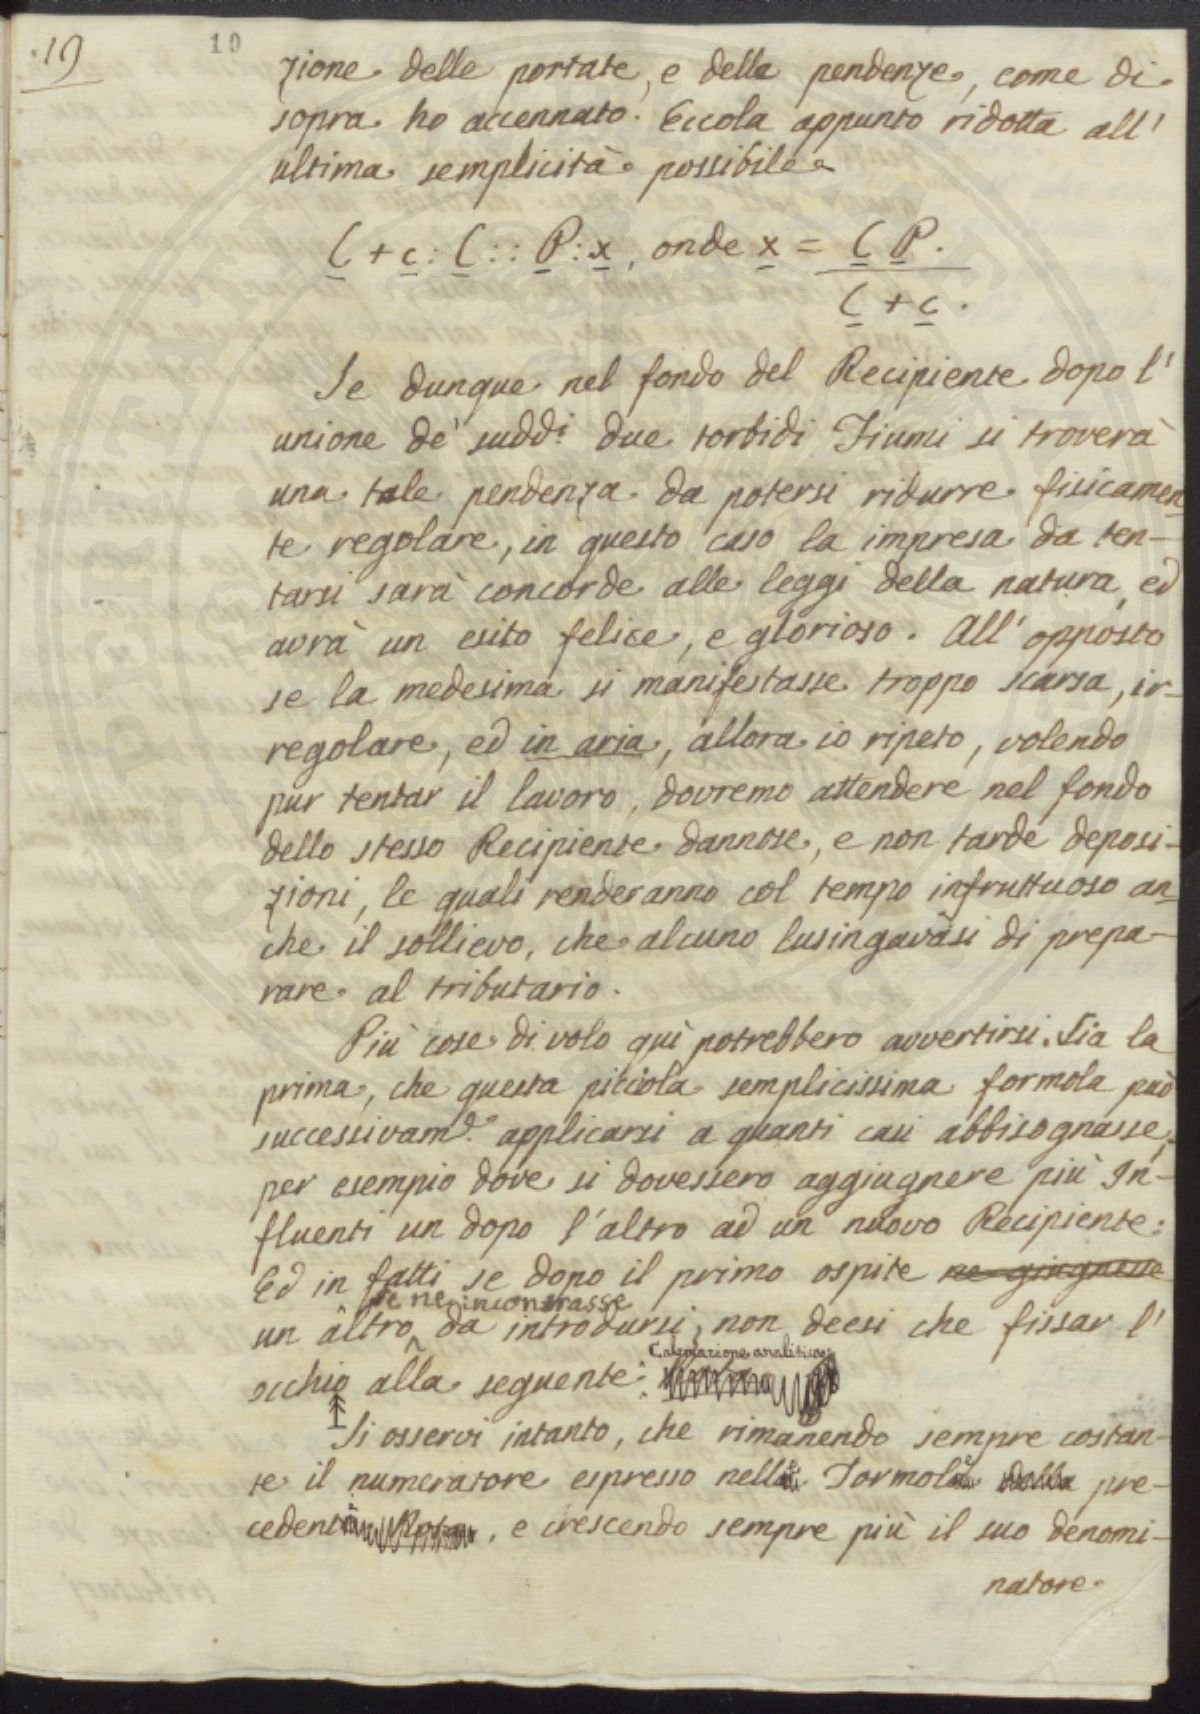 19 10
zione delle portate, e delle pendenze, come di
sopra ho accennato. Eccola appunto ridotta all'
ultima semplicità possibile
C + c : C :: P : x, onde x = C P.
C + c.
Se dunque nel fondo del Recipiente dopo l'
unione de' suddi due torbidi Fiumi si troverà
una tale pendenza da potersi ridurre fisicamen-
te regolare, in questo caso la impresa da ten-
tarsi sarà concorde alle leggi della natura, ed
avrà un esito felice, e glorioso. All' opposto
se la medesima si manifestasse troppo scarsa, ir-
regolare, ed in aria, allora io ripeto, volendo
pur tentar il lavoro, dovremo attendere nel fondo
dello stesso Recipiente dannose, e non tarde deposi-
zioni, le quali renderanno col tempo infruttuoso an-
che il sollievo, che alcuno lusingavasi di prepa-
rare al tributario.
Più cose di volo quì potrebbero avvertirsi. Sia la
prima, che questa picciola semplicissima formola può
successivam.e applicarsi a quanti casi abbisognasse,
per esempio dove si dovessero aggiugnere più In-
fluenti un dopo l'altro ad un nuovo Recipiente:
Ed in fatti se dopo il primo ospite ne giugnesse
se ne incontrasse
un altro da introdursi, non deesi che fissar l'
Calcolazione analitica:
occhio alla seguente:
Si osservi intanto, che rimanendo sempre costan-
te il numeratore espresso nelle Formole della pre-
cedenti, e crescendo sempre più il suo denomi-
natore